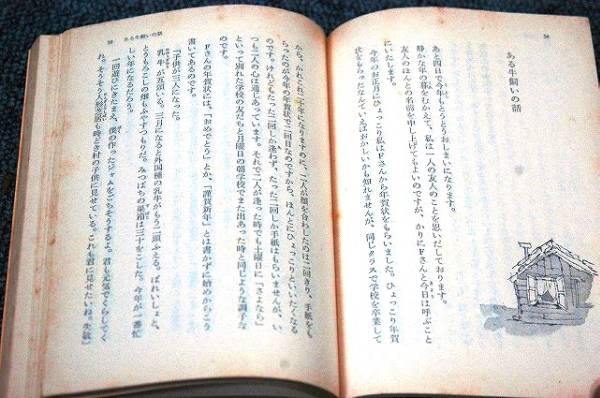 58
ある牛飼いの話
あと四日で今年もとうとうおしまいになります。
静かな年の暮をむかえて、私は一人の友人のことを思いだしております。
友人のほんとの名前を申し上げてもよいのですが、かりにFさんと今日は呼ぶこと
にいたします。
今年のお正月にひょっこり私はFさんから年賀状をもらいました。ひょっこり年賀
状をもらったなんていえばおかしいかも知れませんが、同じクラスで学校を卒業して
59 ある牛飼いの話
から、かれこれ二十年になりますのに、二人が顔を合わしたのは二回きり、手紙をも
らったのが今年の年賀状で二回目なのですから、ほんとにひょっこりといいたくなる
のです。けれどもたった二回しか逢わず、たった二回しか手紙はもらいませんが、い
つも二人の心は通じあっています。それで二人が逢った時でも土曜日に「さよなら」
といって別れた学校の友だちと月曜日の朝学校でまた出あった時と同じような調子な
のです。
Fさんの年賀状には、「おめでとう」とか、「謹賀新年」とは書かずに始めからこう
書いてあるのです。
「子供が三人になった。
乳牛が五頭いる。三月になると外国種の乳牛がもう二頭ふえる。ばれいしょと、
とうもろこしの畑もふやすつもりだ。みつばちの巣箱は三十をこした。今年が一番忙
しい年になるだろう。
一回遊びにきたまえ、僕の作ったジャムをごちそうするよ。君も元気でくらしてく
れ。そうそう人形芝居も時どき村の子供に見せている。これも君に見せたいね。失敬」